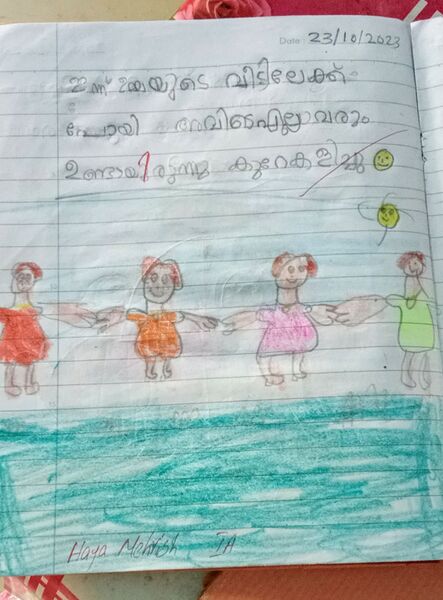 Date: 23/10/2023
ഇന്ന് ഉമ്മയുടെ വീട്ടിലേക്ക്
പോയി അവിടെഎല്ലാവരും
ഉണ്ടായിരുന്നു കുറേകളിച്ചു
Haya Mehrish IA